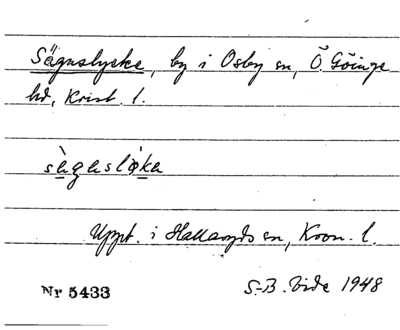 Sägnslycke, by i Osby sn, Ö. Göinge
hd, Krist. l.
sègnslỳka
Uppt. i Hallaryds sn, Kron. l.
Nr 5433
S.-B. Vide 1948